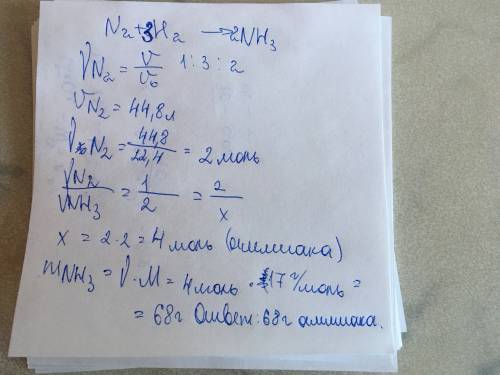 N2+3H2 → 2NH3
νN2 = V/V0 1:3:2
VN2 = 44,8 л
νN2 = 44,8/22,4 = 2 моль
νN2/νNH3 = 1/2 = 2/x
x = 2·2 = 4 моль (аммиака)
mNH3 = ν·M = 4 моль · 17 г/моль =
= 68 г Ответ: 68 г аммиака.